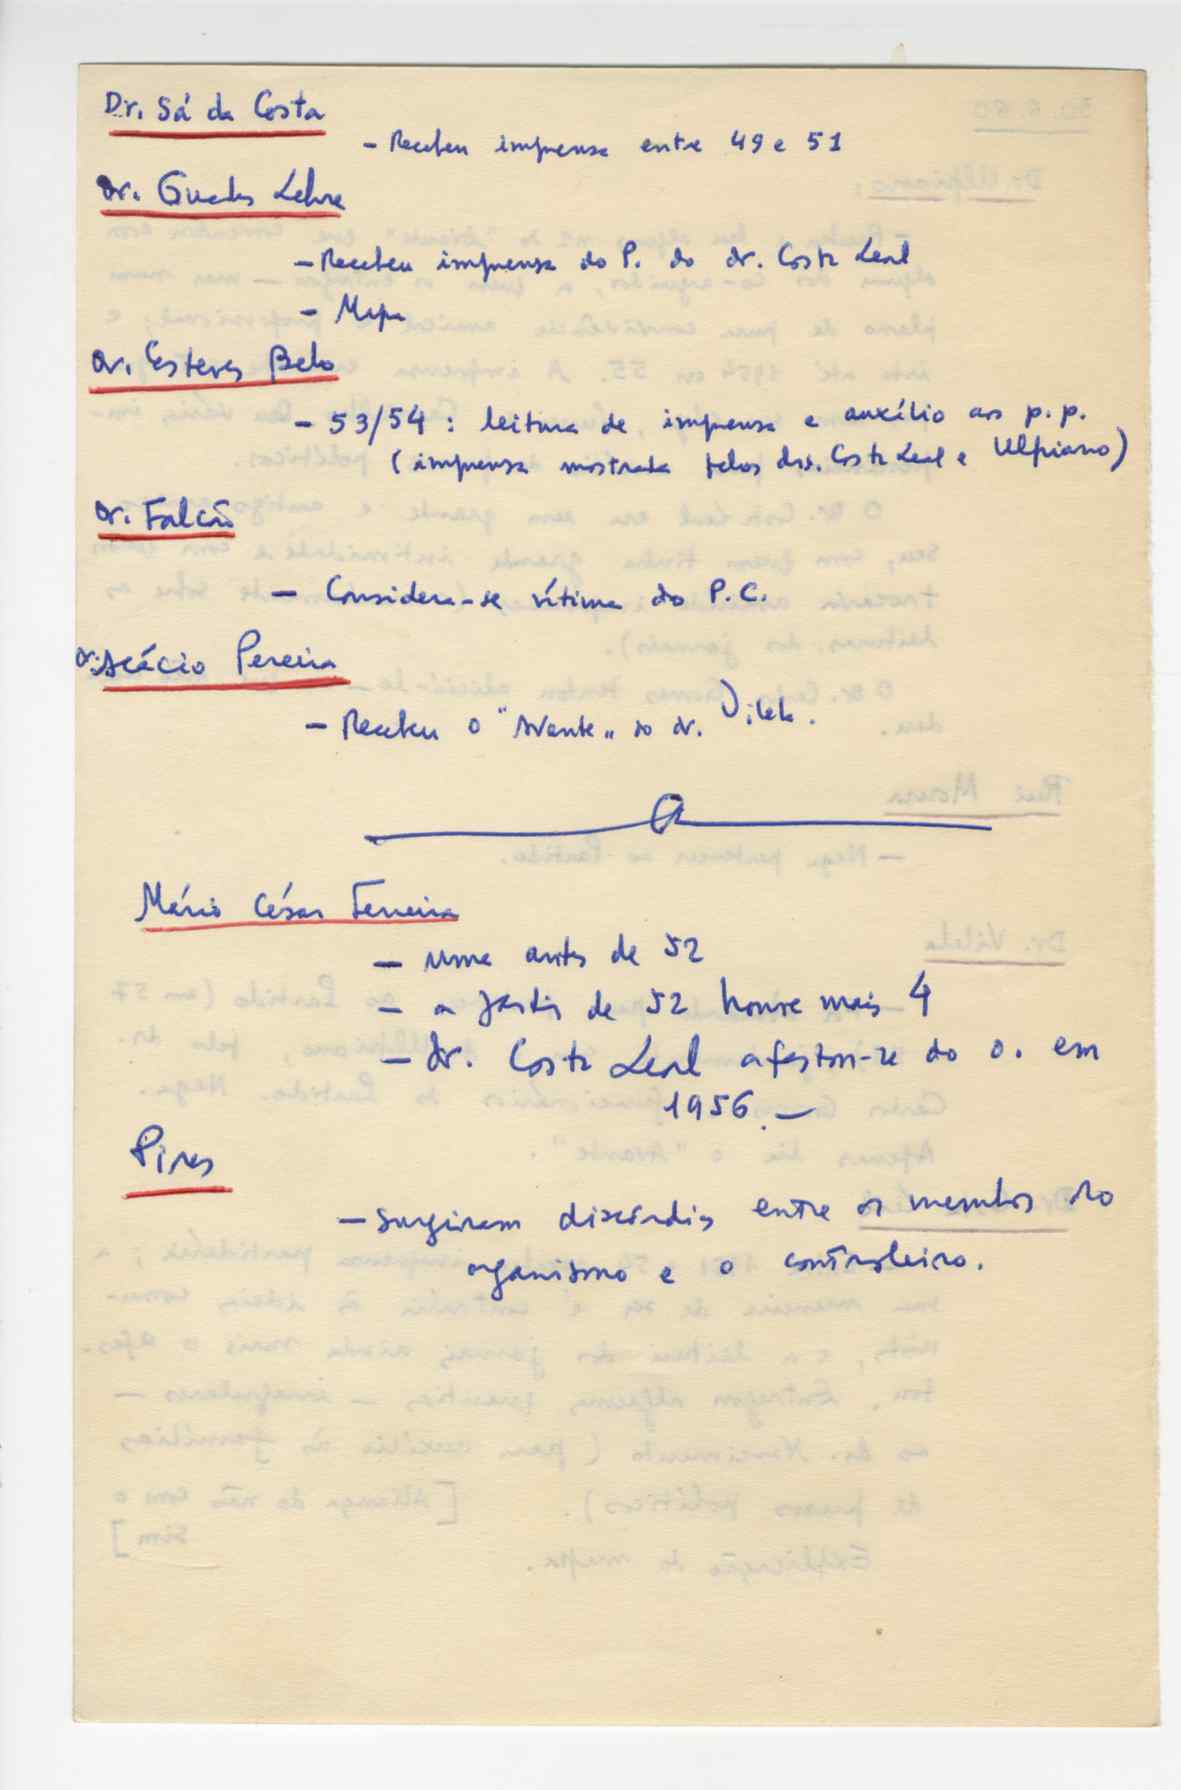 Dr. Sá da Costa
- Recebeu imprensa entre 49 e 51
Dr. Guedes Lebre
- Recebeu imprensa do P. do dr. Costa Leal
- Mapa
Dr. Esteves Belo
- 53/54 : leitura de imprensa e auxílio aos p.p.
(imprensa mostrada pelos drs. Costa Leal e Ulpiano)
Dr. Falcão
- Considera-se vítima do P.C.
Dr. Acácio Pereira
- Recebeu o "Avante" do dr. Vilela.
Mário César Ferreira
- uma antes de 52
- a partir de 52 houve mais 4
- dr. Costa Leal afastou-se do o. em
1956. -
Pires
- Surgiram discórdias entre os membros do
organismo e o controleiro.